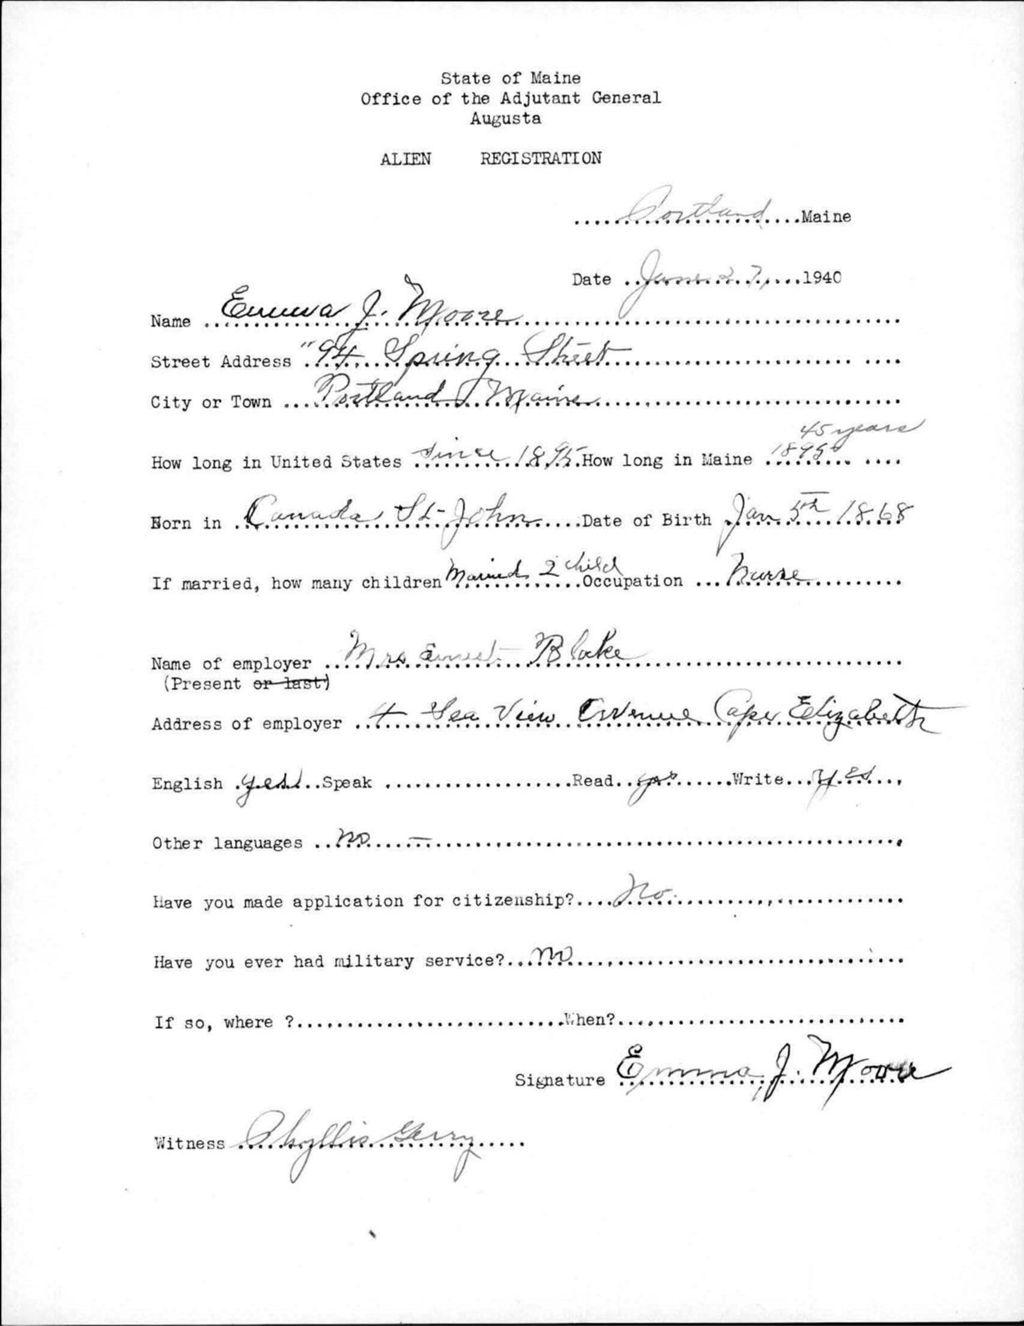 State of Maine
Office of the Adjutant General
Augusta
ALIEN REGISTRATION
Portland Maine
Date June 27, 1940
Name Emma J. Moore
Street Address "94 Spring Street
City or Town Portland Maine
45 years
How long in United States Since 1895 How long in Maine 1895
Born in Canada St-John Date of Birth Jan 5th 1868
If married, how many children Married 2 child Occupation Nurse
Name of employer Mrs Ernest Blake
(Present or last)
Address of employer 4 Sea View Avenue Cape Elizabeth
English yes Speak Read yes Write yes
Other languages no —
Have you made application for citizenship? No.
Have you ever had military service? no
If so, where ? When?
Signature Emma, J. Moore
Witness Phyllis Gerry